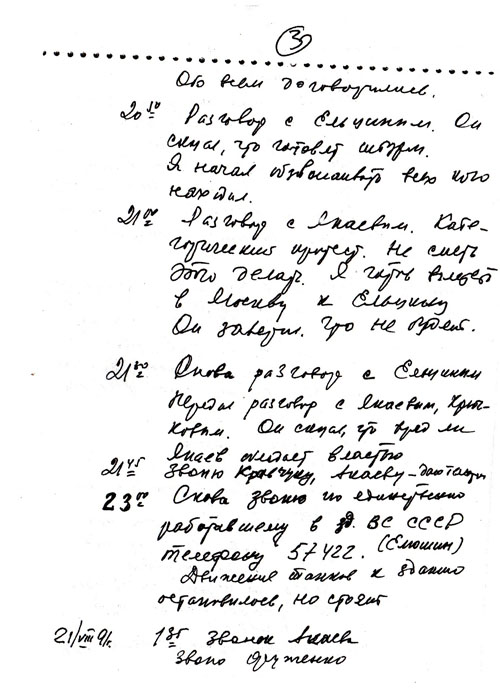 3
Обо всем договорились.
20 50 Разговор с Ельциным. Он
сказал, что готовят штурм.
Я начал обзванивать всех кого
находил.
21 00 Разговор с Янаевым. Кате-
горический протест. Не сметь
этого делать. Я готов вылететь
в Москву к Ельцину
Он заверил. Что не будет.
21 30 Снова разговор с Ельциным
Передал разговор с Янаевым, Крюч-
ковым. Он сказал, что вряд ли
Янаев обладает властью
21 45 Звоню Кравчуку, Акаеву -
23 00 Снова звоню по единственно
работавшему в зд. ВС СССР
телефону 57422. (Елюшин)
Движение танков к зданию
остановилось, но стоят
21/VIII 91г. 1 35 звонок Акаева
Звоню Фуженко